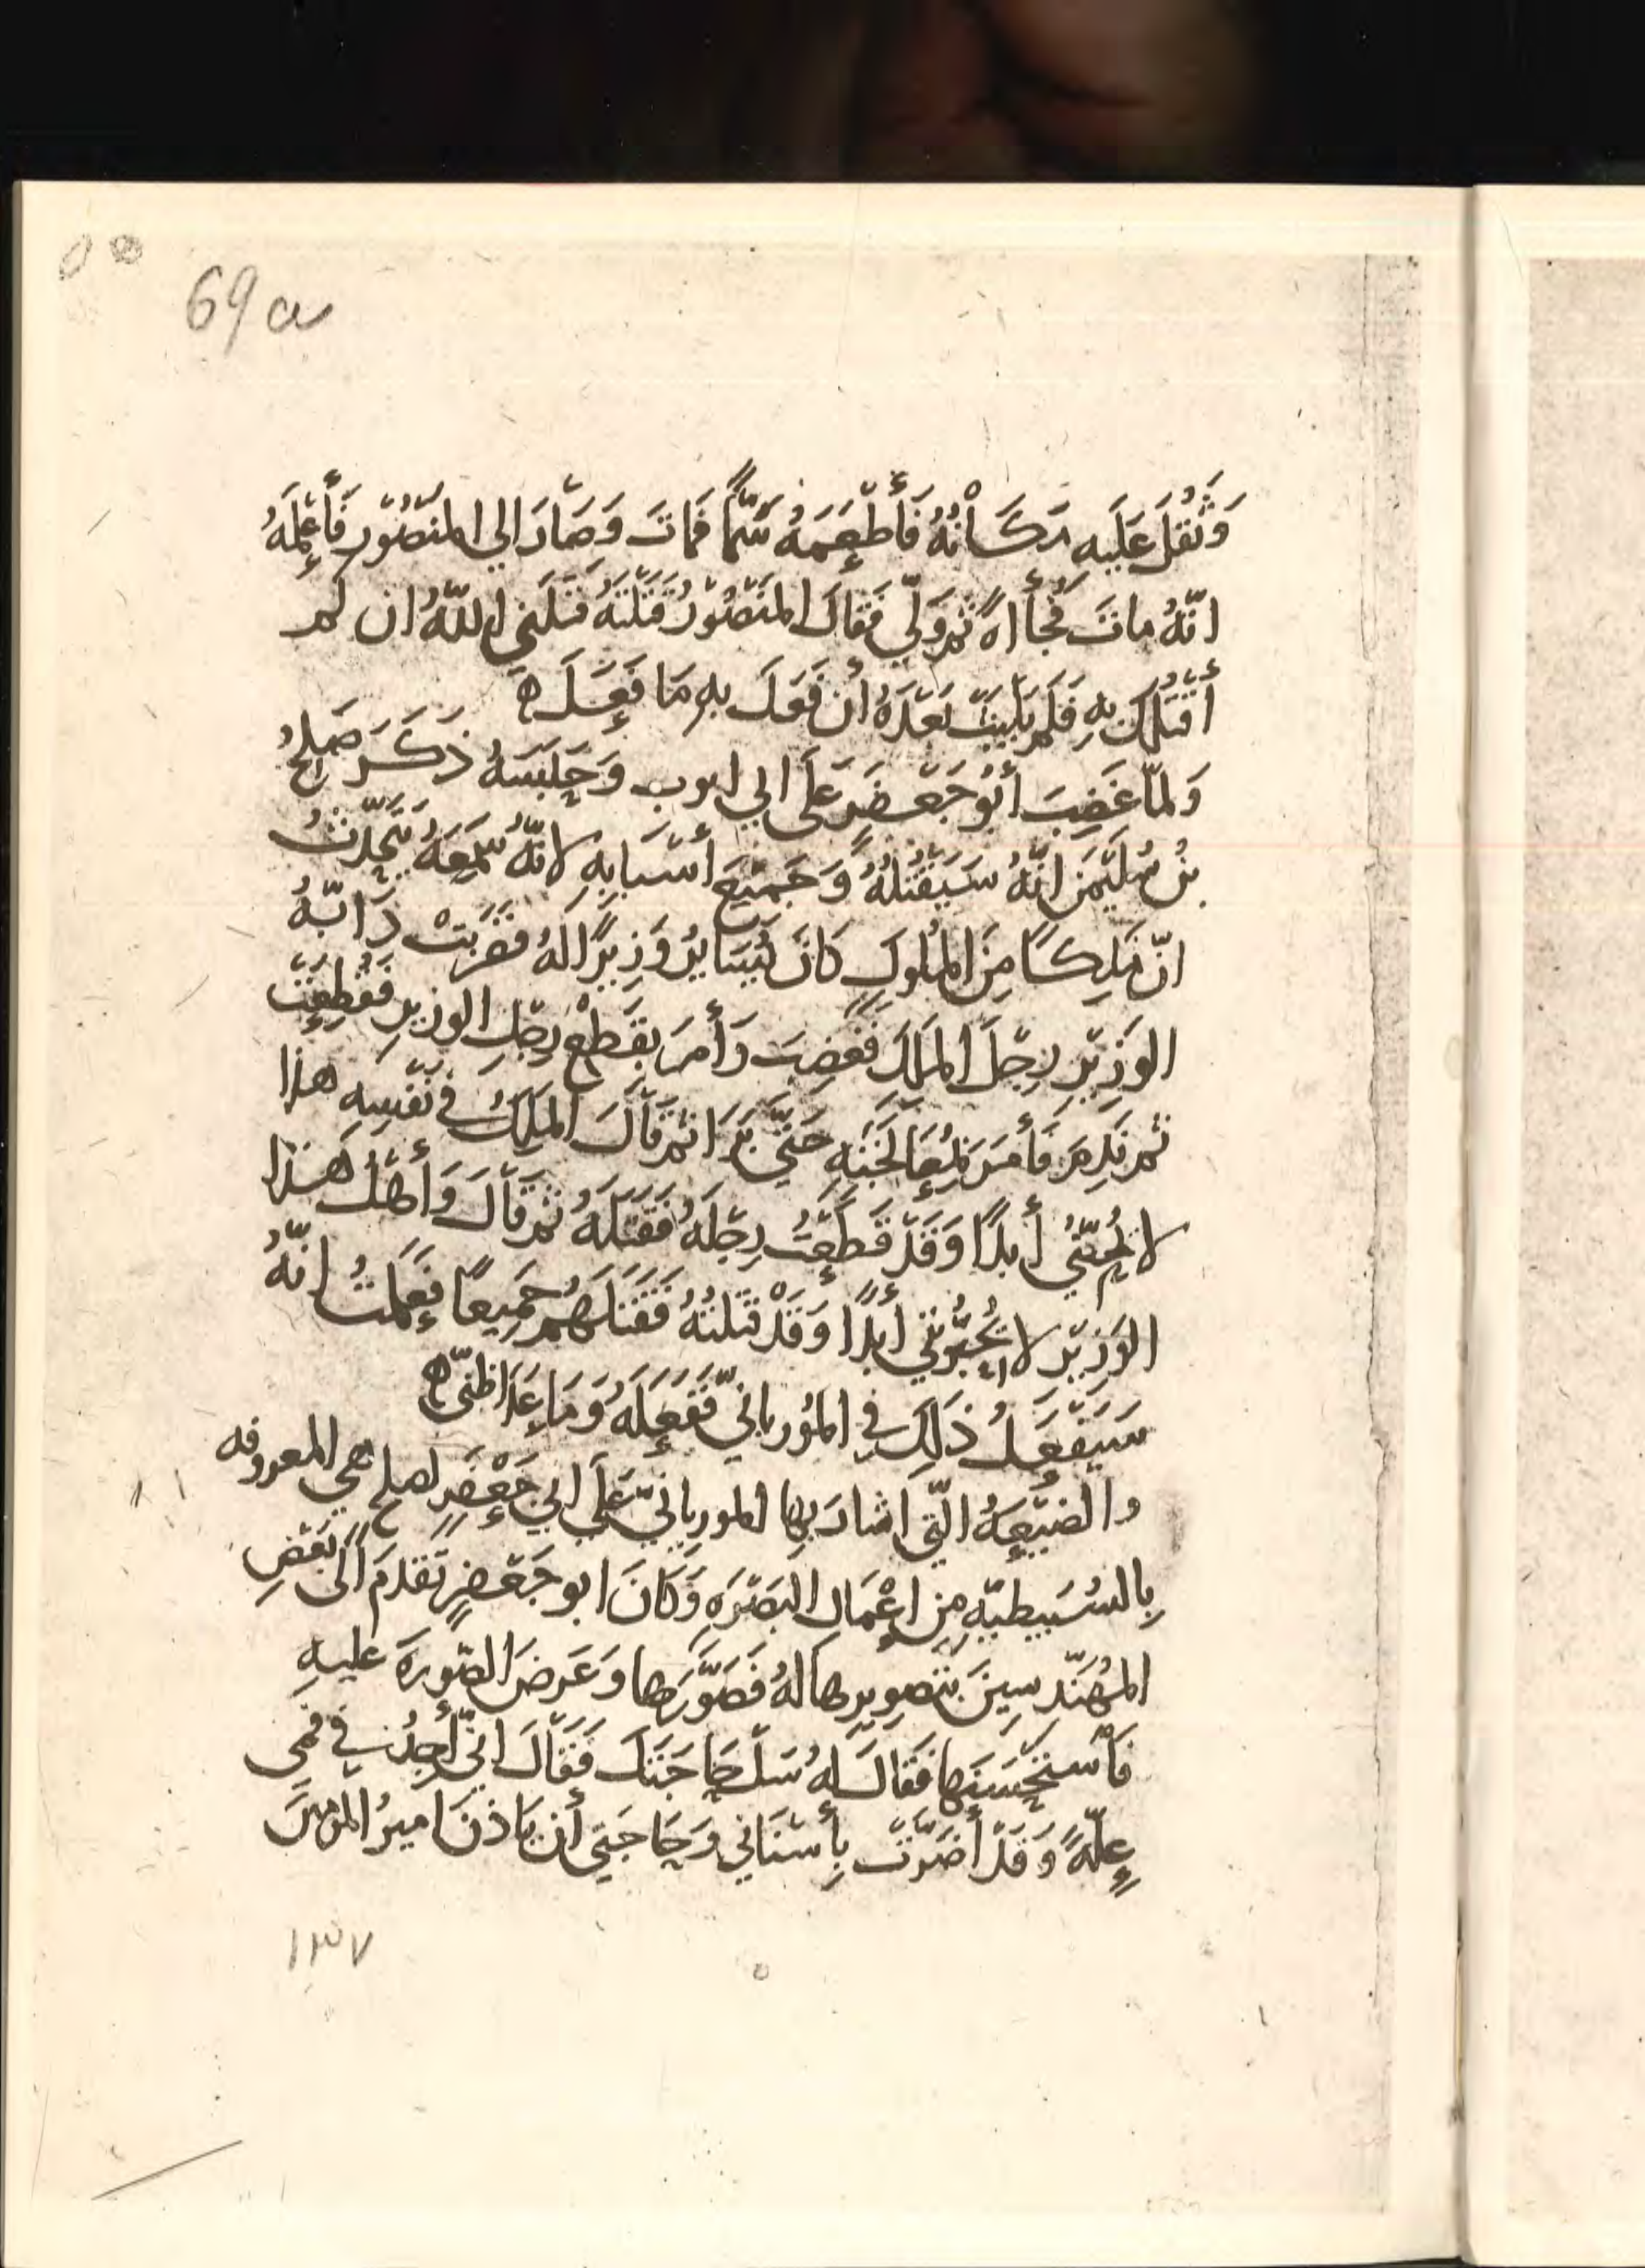 69a
وَثَقُلَ عَلَيهِ مَكَانُهُ فَأَطْعَمَهُ سَمًّا فَمَاتَ وَصَارَ الي المنصُور فَأَعْلَمَهُ
انّهُ ماتَ فُجأاةً ثم وَلّي فَقالَ المنصُورُ قَتَلتَهُ قَتَلَني اللهُ ان لم
أقتُلك بِهِ فلم يَلبَث بَعدَهُ أن فعَلَ بهِ مَا فَعَلَ ه
وَلمّا غَضِبَ أبُو جَعفَرٍ عَلَى ابي ايوب وَحَبَسَهُ ذَكَرَ صَلِحُ
بنُ سُلَيمَنَ انّهُ سَيَقتُلُهُ وَجَميعَ أسبَابِهِ لانّهُ سَمِعَهُ يَتَحَدّثُ
انّ مَلِكًا مِنَ المُلوكِ كانَ يُسَايرُ وَزِيرًا لهُ فضَرَبَتْ دَابّةُ
الوَزِيرِ رِجلَ المَلِكِ فغَضِبَ وَأَمَرَ بقَطْعِ رِجلِ الوزيرِ فقُطِعَت
ثم نَدِمَ فَأَمَرَ بِمُعَالَجَتِهِ حَتّي بَرَا ثم قالَ المَلِكُ في نَفسِهِ هذا
لا يُحِبّني أَبدًا وَقَد قَطَعتُ رِجلَهُ فَقَتَلَهُ ثم قالَ وَأَهلُ هَذا
الوَزير لا يُحِبُّونني أَبدًا وَقَدْ قَتَلتُهُ فَقَتَلَهُم جَمِيعًا فَعَلِمتُ انّهُ
سَيَفعَلُ ذَلِكَ في المُورياني فَفَعَلَهُ وَمَا عَدَا ظَنّي ه
والضَيعَةُ الّتي اشارَ بها المورياني عَلَي ابي جَعْفَرٍ لصلح هي المعروفه
بِالسُبَيطيّهِ مِن اعْمَالِ البَصرَهِ وَكَانَ ابو جَعفَرٍ تَقَدّمَ الَي بَعضِ
المُهَندِسِينَ بتَصوِيرِها لهُ فَصَوَّرَها وَعَرضَ الصّورَةَ عليهِ
فَاستَحسَنَها فَقالَ لهُ سَل حَاجَتَكَ فَقالَ انّي أجِدُ في فمي
عِلّةً وَقَد أَضَرّت بِأَسنَاني وَحَاجَتي أن يَاذنَ اميرُ المومنينَ
١٣٧